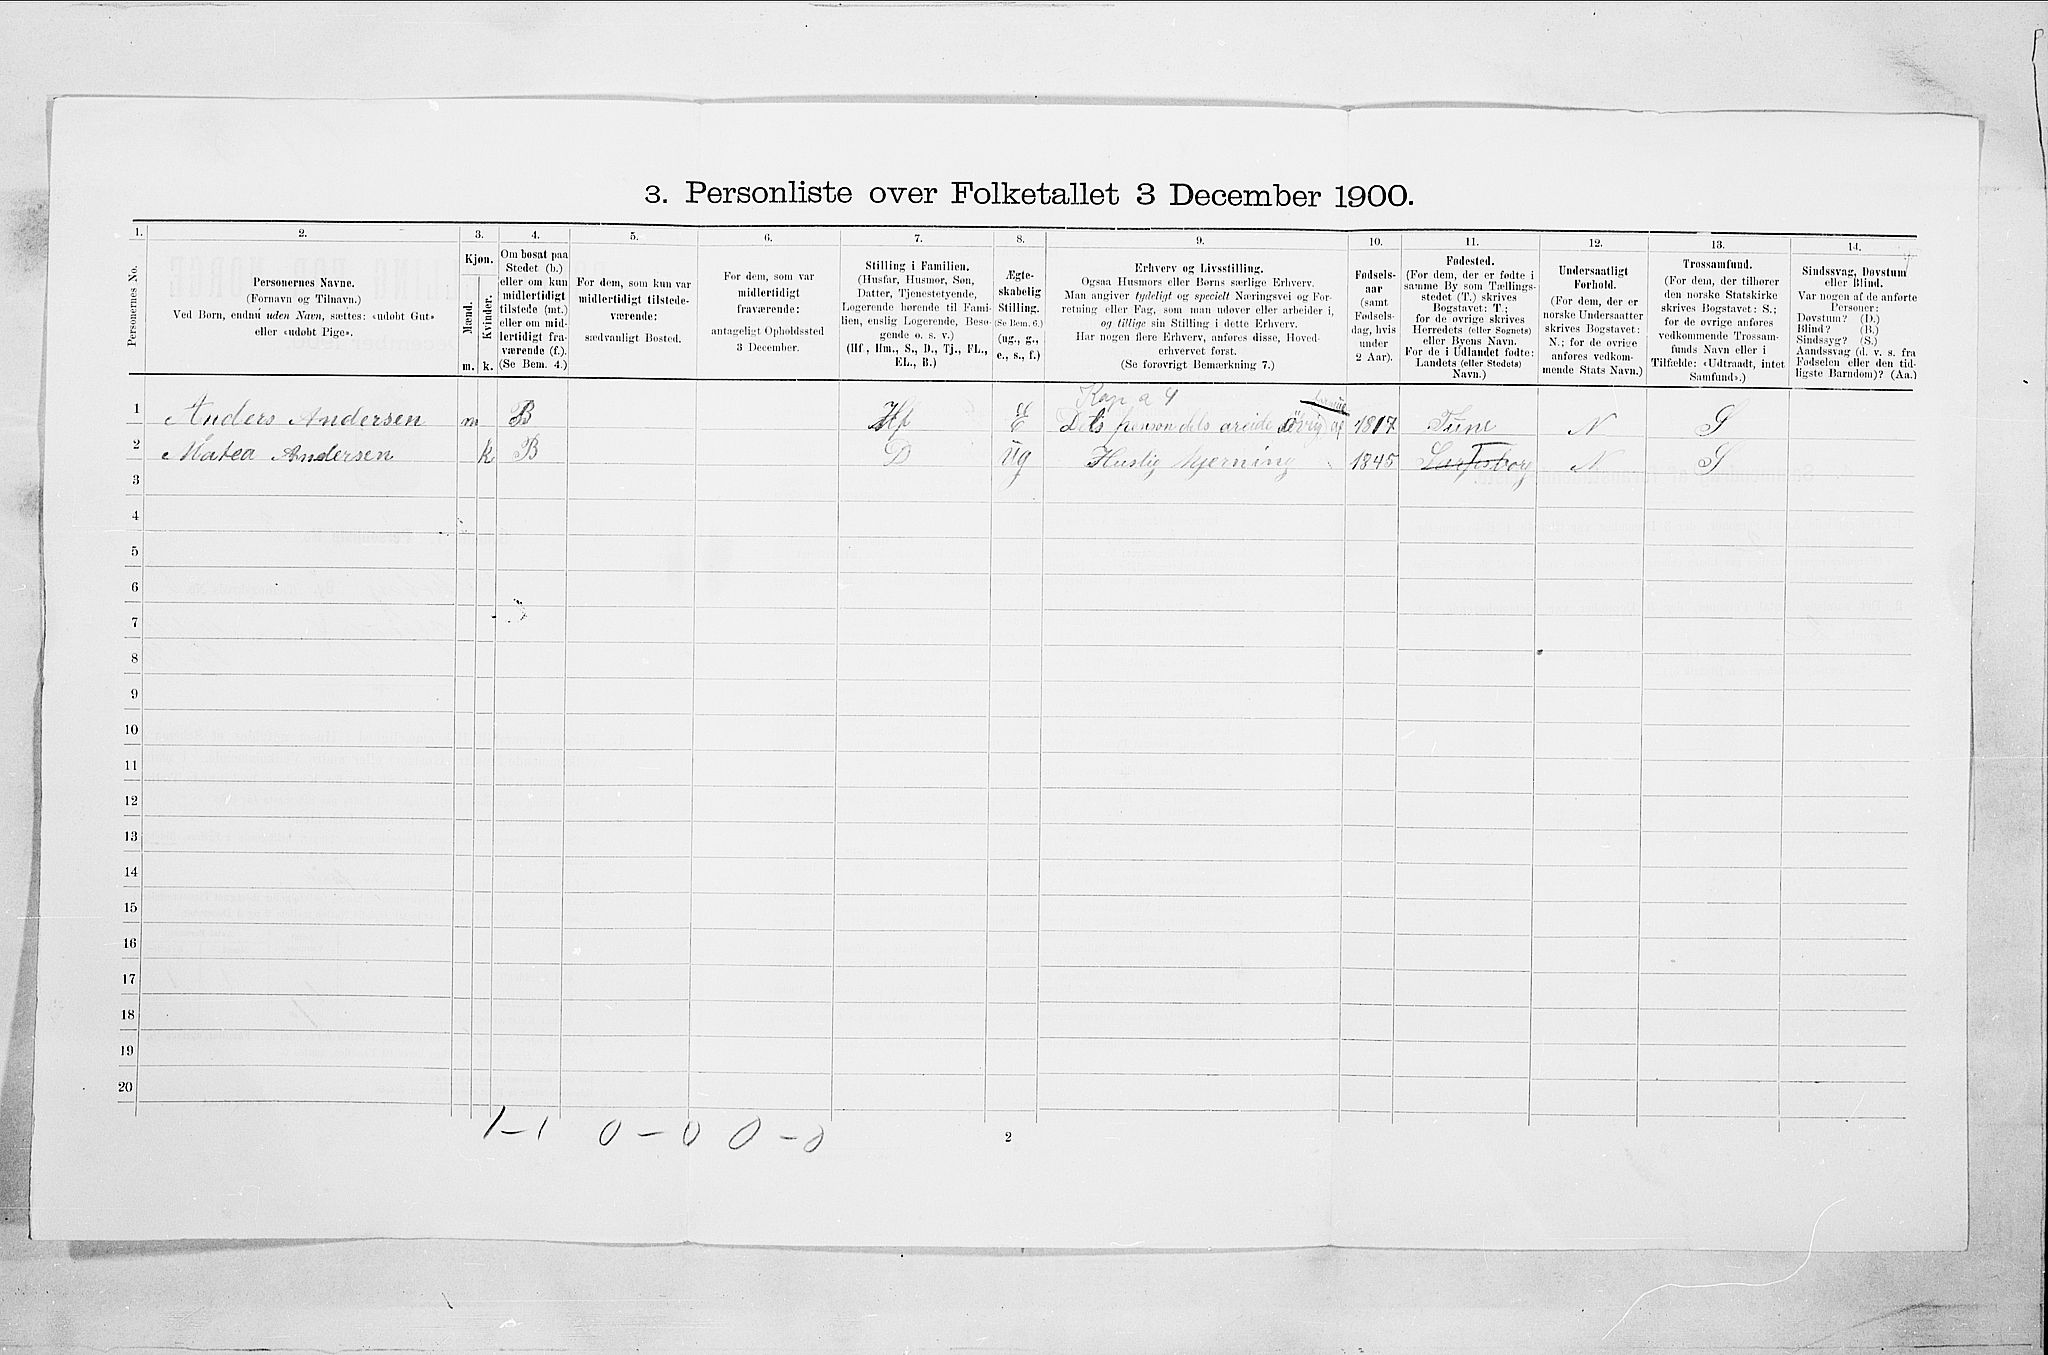 3. Personliste over Folketallet 3 December 1900.
1. 2. 3. 4. 5. 6. 7. 8. 9. 10. 11. 12. 13. 14.
Personernes No.
Personernes Navne.
(Fornavn og Tilnavn.)
Ved Børn, endnu uden Navn, sættes: «udøbt Gut»
eller «udøbt Pige».
Kjøn.
Mænd.
Kvinder.
m. k.
Om bosat paa
Stedet (b.)
eller om kun
midlertidigt
tilstede (mt.)
eller om mid-
lertidigt fra-
værende (f.).
(Se Bem. 4.)
For dem, som kun var
midlertidigt tilstede-
værende:
sædvanligt Bosted.
For dem, som var
midlertidigt
fraværende:
antageligt Opholdssted
3 December.
Stilling i Familien.
(Husfar, Husmor, Søn,
Datter, Tjenestetyende,
Logerende hørende til Fami-
lien, enslig Logerende, Besø-
gende o. s. v.)
(Hf., Hm., S., D., Tj., FL.,
EL., B.)
Ægte-
skabelig
Stilling.
(Se Bem. 6.)
(ug., g.,
e., s., f.)
Erhverv og Livsstilling.
Ogsaa Husmors eller Børns særlige Erhverv.
Man angiver tydeligt og specielt Næringsvei og For-
retning eller Fag, som man udøver eller arbeider i,
og tillige sin Stilling i dette Erhverv.
Har nogen flere Erhverv, anføres disse, Hoved-
erhvervet først.
(Se forøvrigt Bemærkning 7.)
Fødsels-
aar
(samt
Fødsels-
dag, hvis
under
2 Aar).
Fødested.
(For dem, der er fødte i
samme By som Tællings-
stedet (T.) skrives
Bogstavet: T.;
for de øvrige skrives
Herredets (eller Sognets)
eller Byens Navn.
For de i Udlandet fødte:
Landets (eller Stedets)
Navn.)
Undersaatligt
Forhold.
(For dem, der er
norske Undersaatter
skrives Bogstavet:
N.; for de øvrige
anføres vedkom-
mende Stats Navn.)
Trossamfund.
(For dem, der tilhører
den norske Statskirke
skrives Bogstavet: S.;
for de øvrige anføres
vedkommende Trossam-
funds Navn eller i
Tilfælde: «Udtraadt, intet
Samfund».)
Sindssvag, Døvstum
eller Blind.
Var nogen af de anførte
Personer:
Døvstum? (D.)
Blind? (B.)
Sindssyg? (S.)
Aandssvag (d. v. s. fra
Fødselen eller den tid-
ligste Barndom)? (Aa.)
1 Anders Andersen m B Hf E 1817 Tune N S
2 Matea Andersen k B D ug Huslig Hjerning 1845 Sarpsborg T N S
3
4
5
6
7
8
9
10
11
12
13
14
15
16
17
18
19
20
1-1 0-0 0-0
2